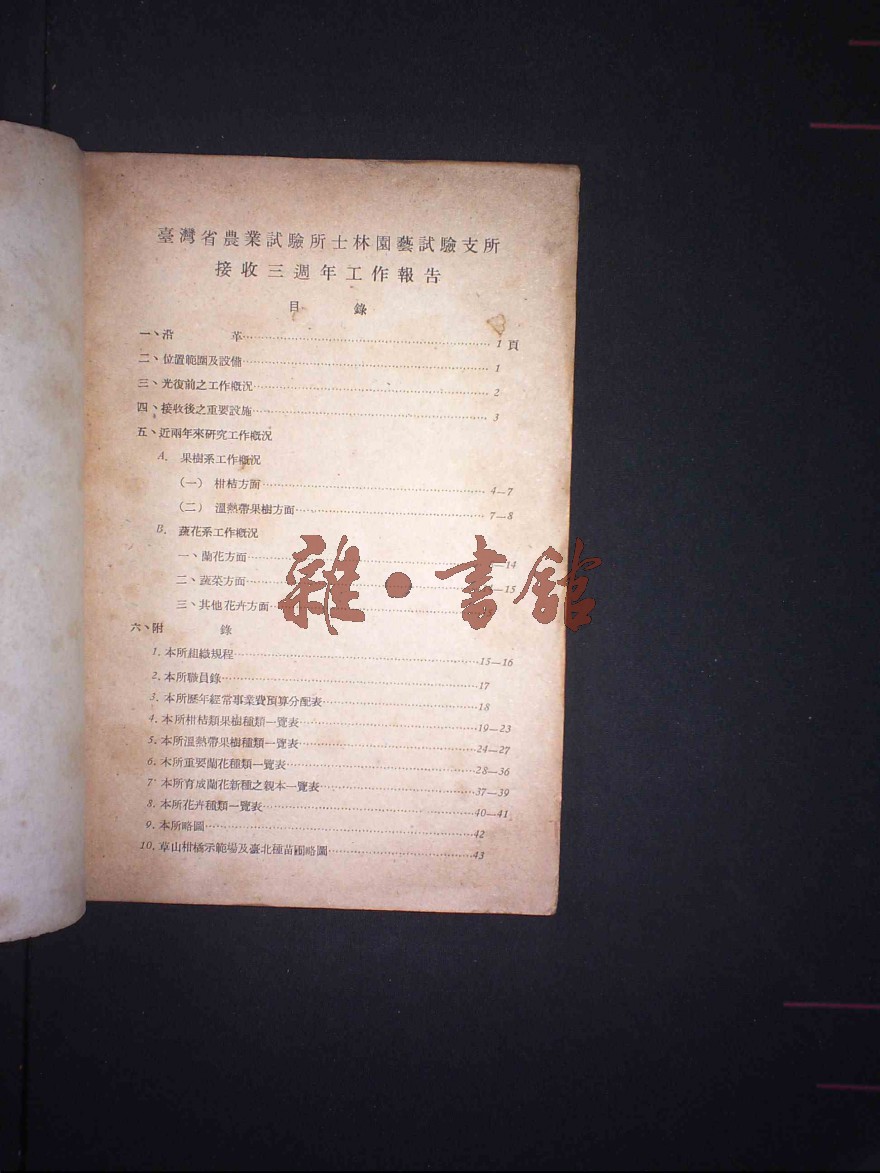 臺灣省農業試驗所士林園藝試驗支所
接收三週年工作報告
目 錄
一、沿 革 1 頁
二、位置範圍及設備 1
三、光復前之工作概況 2
四、接收後之重要設施 3
五、近兩年來研究工作概況
A. 果樹系工作概況
(一) 柑桔方面 4—7
(二) 溫熱帶果樹方面 7—8
B. 蔬花系工作概況
一、蘭花方面 —14
二、蔬菜方面 —15
三、其他花卉方面
雜·書館
六、附 錄
1. 本所組織規程 15—16
2. 本所職員錄 17
3. 本所歷年經常事業費預算分配表 18
4. 本所柑桔類果樹種類一覽表 19—23
5. 本所溫熱帶果樹種類一覽表 24—27
6. 本所重要蘭花種類一覽表 28—36
7. 本所育成蘭花新種之親本一覽表 37—39
8. 本所花卉種類一覽表 40—41
9. 本所略圖 42
10. 草山柑橘示範場及臺北種苗圃略圖 43